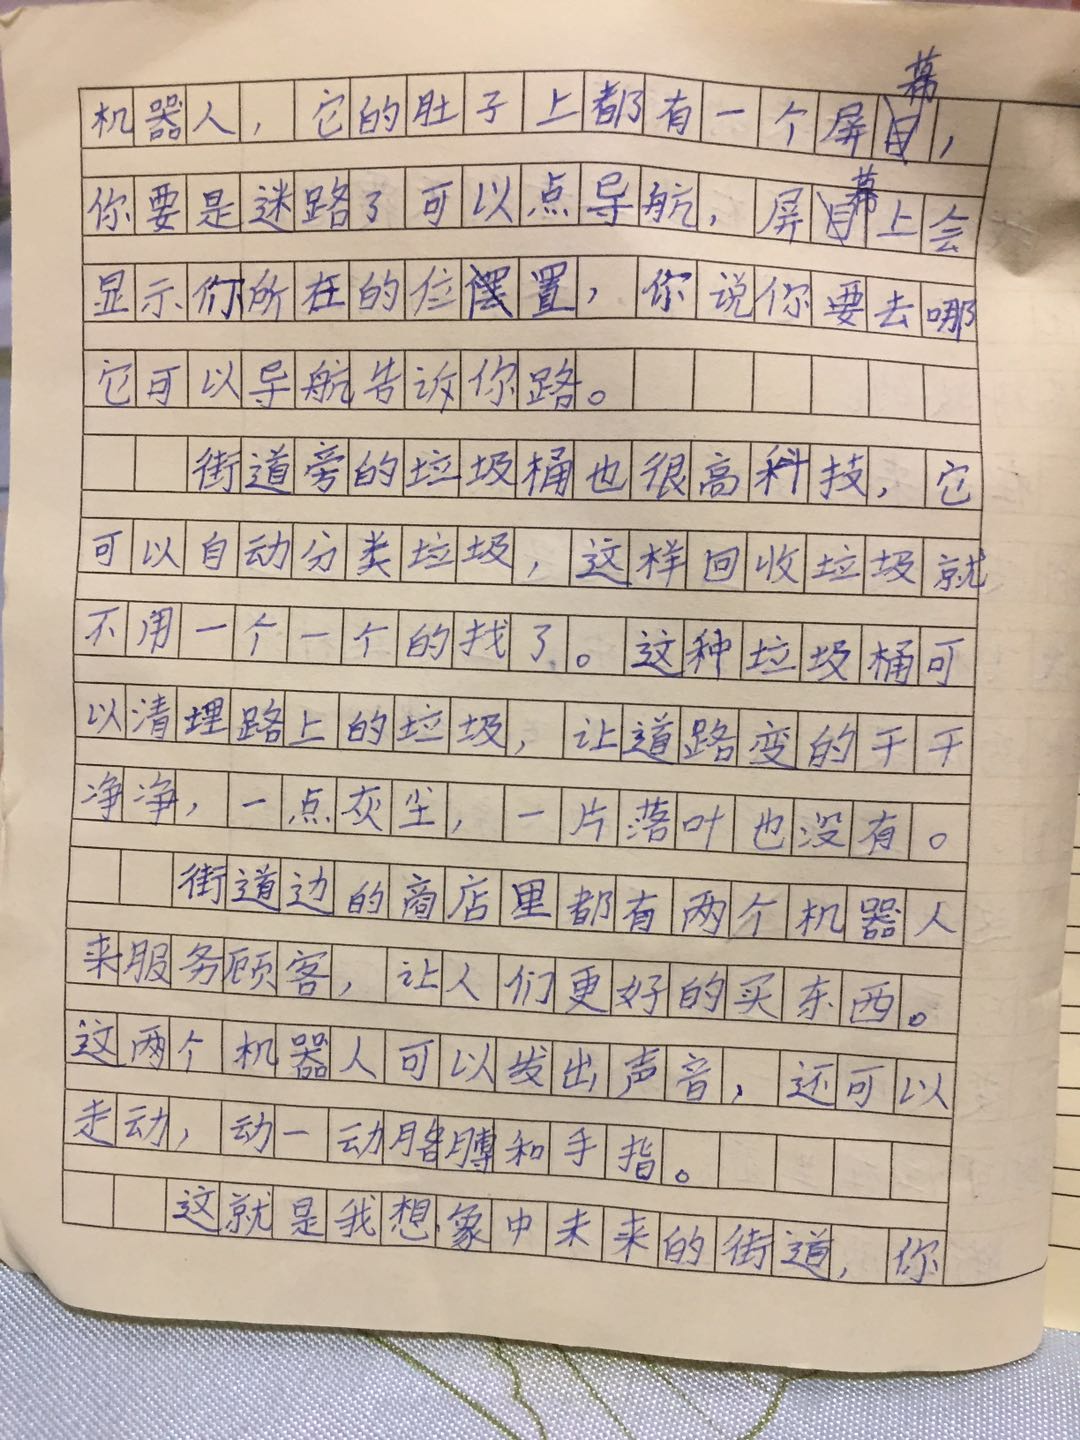 机器人，它的肚子上都有一个屏幕，
你要是迷路了可以点导航，屏幕上会
显示你所在的位置，你说你要去哪
它可以导航告诉你路。
街道旁的垃圾桶也很高科技，它
可以自动分类垃圾，这样回收垃圾就
不用一个一个的找了。这种垃圾桶可
以清理路上的垃圾，让道路变的干干
净净，一点灰尘，一片落叶也没有。
街道边的商店里都有两个机器人
来服务顾客，让人们更好的买东西。
这两个机器人可以发出声音，还可以
走动，动一动胳膊和手指。
这就是我想象中未来的街道，你